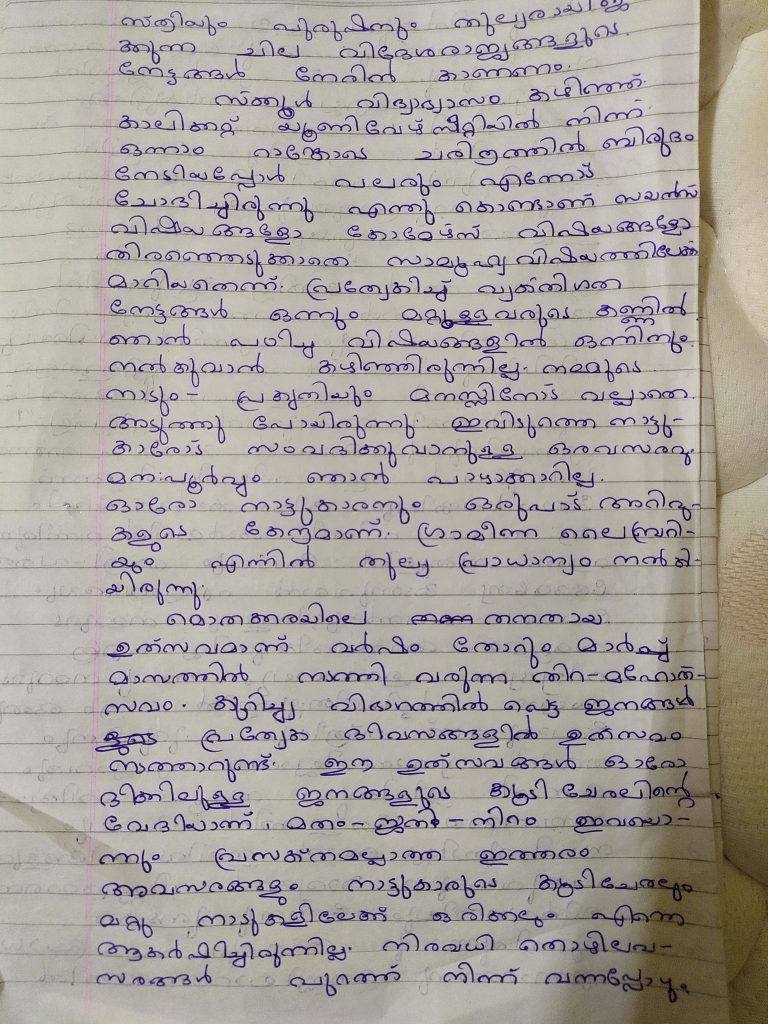 സ്ത്രീയും പുരുഷനും തുല്യരായിജീ
ക്കുന്ന ചില വിദേശരാജ്യങ്ങളുടെ
നേട്ടങ്ങൾ നേരിൽ കാണണം.
സ്ക്കൂൾ വിദ്യാഭ്യാസം കഴിഞ്ഞ്
കാലിക്കറ്റ് യൂണിവേഴ്സിറ്റിയിൽ നിന്ന്
ഒന്നാം റാങ്കോടെ ചരിത്രത്തിൽ ബിരുദം
നേടിയപ്പോൾ പലരും എന്നോട്
ചോദിച്ചിരുന്നു എന്തു കൊണ്ടാണ് സയൻസ്
വിഷയങ്ങളോ കോമേഴ്സ് വിഷയങ്ങളോ
തിരഞ്ഞെടുക്കാതെ സാമൂഹ്യവിഷയത്തിലേക്ക്
മാറിയതെന്ന്. പ്രത്യേകിച്ച് വ്യക്തിഗത
നേട്ടങ്ങൾ ഒന്നും മറ്റുള്ളവരുടെ കണ്ണിൽ
ഞാൻ പഠിച്ച വിഷയങ്ങളിൽ ഒന്നിനും
നൽകുവാൻ കഴിഞ്ഞിരുന്നില്ല. നമ്മുടെ
നാടും - പ്രകൃതിയും മനസ്സിനോട് വല്ലാതെ
അടുത്തു പോയിരുന്നു. ഇവിടുത്തെ നാട്ടു-
കാരോട് സംവദിക്കുവാനുള്ള ഒരവസരവും
മന:പൂർവ്വം ഞാൻ പാഴാക്കാറില്ല.
ഓരോ നാട്ടുകാരനും ഒരുപാട് അറിവു-
കളുടെ കേന്ദ്രമാണ്. ഗ്രാമീണ ലൈബ്രറി-
യും എന്നിൽ തുല്യ പ്രാധാന്യം നൽകി-
യിരുന്നു.
മൊതക്കരയിലെ തനതായ
ഉത്സവമാണ് വർഷം തോറും മാർച്ച്
മാസത്തിൽ നടത്തി വരുന്ന തിറ-മഹോത്-
സവം. കുറിച്ച്യ വിഭാഗത്തിൽ പ്പെട്ട ജനങ്ങൾ
പ്രത്യേക ദിവസങ്ങളിൽ ഉത്സവം
നടത്താറുണ്ട്. ഈ ഉത്സവങ്ങൾ ഓരോ
ദിക്കിലുള്ള ജനങ്ങളുടെ കൂടിചേരലിന്റെ
വേദിയാണ്. മതം-ജാതി-നിറം ഇവയൊ-
ന്നും പ്രസക്തമല്ലാത്ത ഇത്തരം
അവസരങ്ങളും നാട്ടുകാരുടെ കൂടിചേരലും
മറ്റു നാടുകളിലേക്ക് ഒരിക്കലും എന്നെ
ആകർഷിച്ചിരുന്നില്ല. നിരവധി തൊഴിലവ-
സരങ്ങൾ പുറത്ത് നിന്ന് വന്നപ്പോഴും